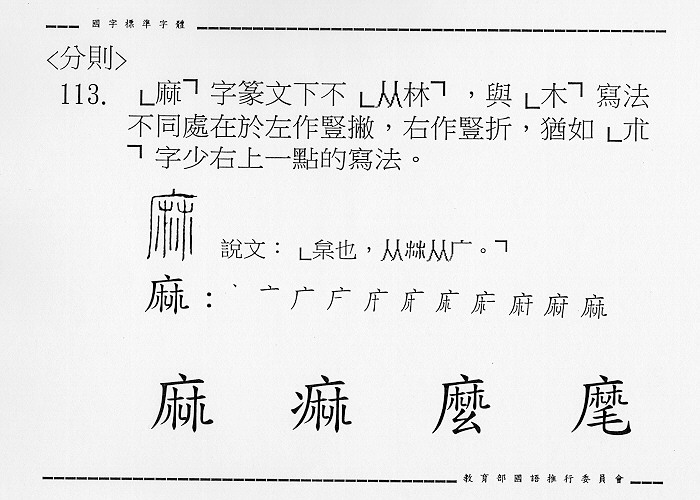 國字標準字體
<分則>
113. ﹂麻﹁字篆文下不﹂从林﹁，與﹂木﹁寫法
不同處在於左作豎撇，右作豎折，猶如﹂朮
﹁字少右上一點的寫法。
麻
說文：﹂枲也，从𣏟从广。﹁
麻：丶 亠 广
麻 痲 麼 麾
教育部國語推行委員會